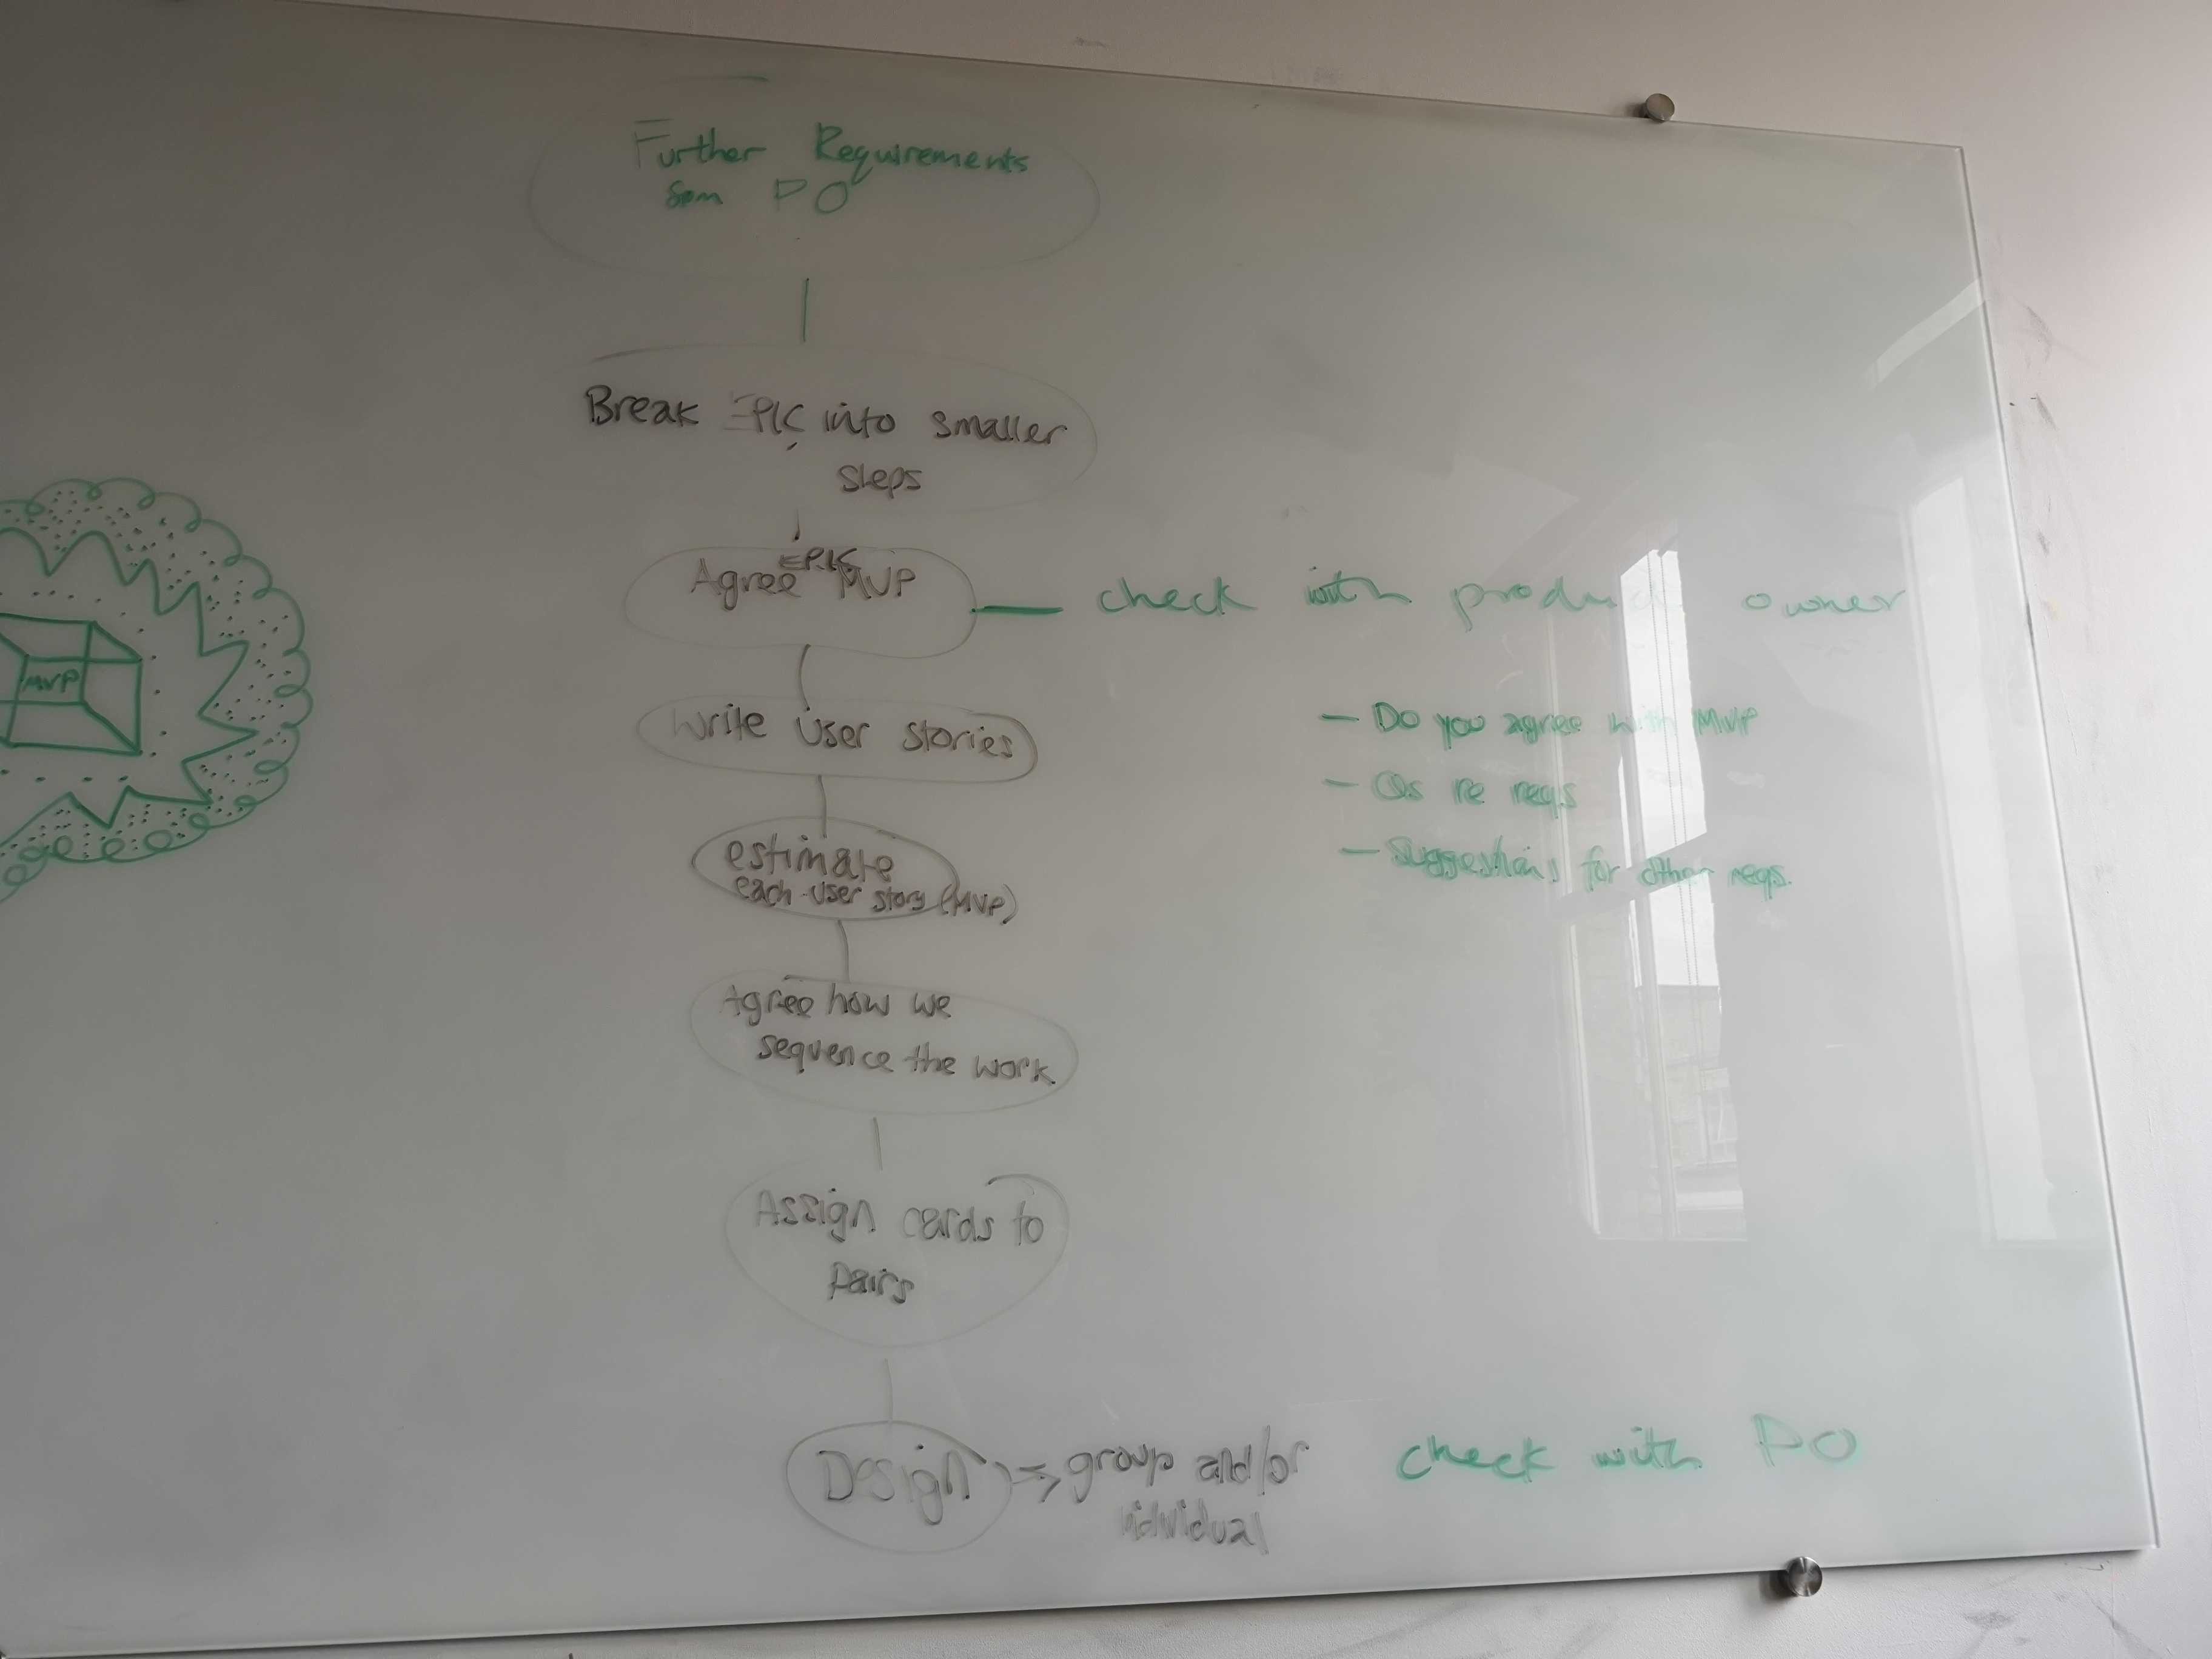 Further Requirements
from PO
Break EPIC into smaller
steps
EPIC
Agree MVP
check with product owner
MVP
write user stories
- Do you agree with MVP
- Qs re reqs
- Suggestions for other reqs.
estimate
each user story (MVP)
Agree how we
sequence the work
Assign cards to
pairs
Design
group and/or
individual
check with PO